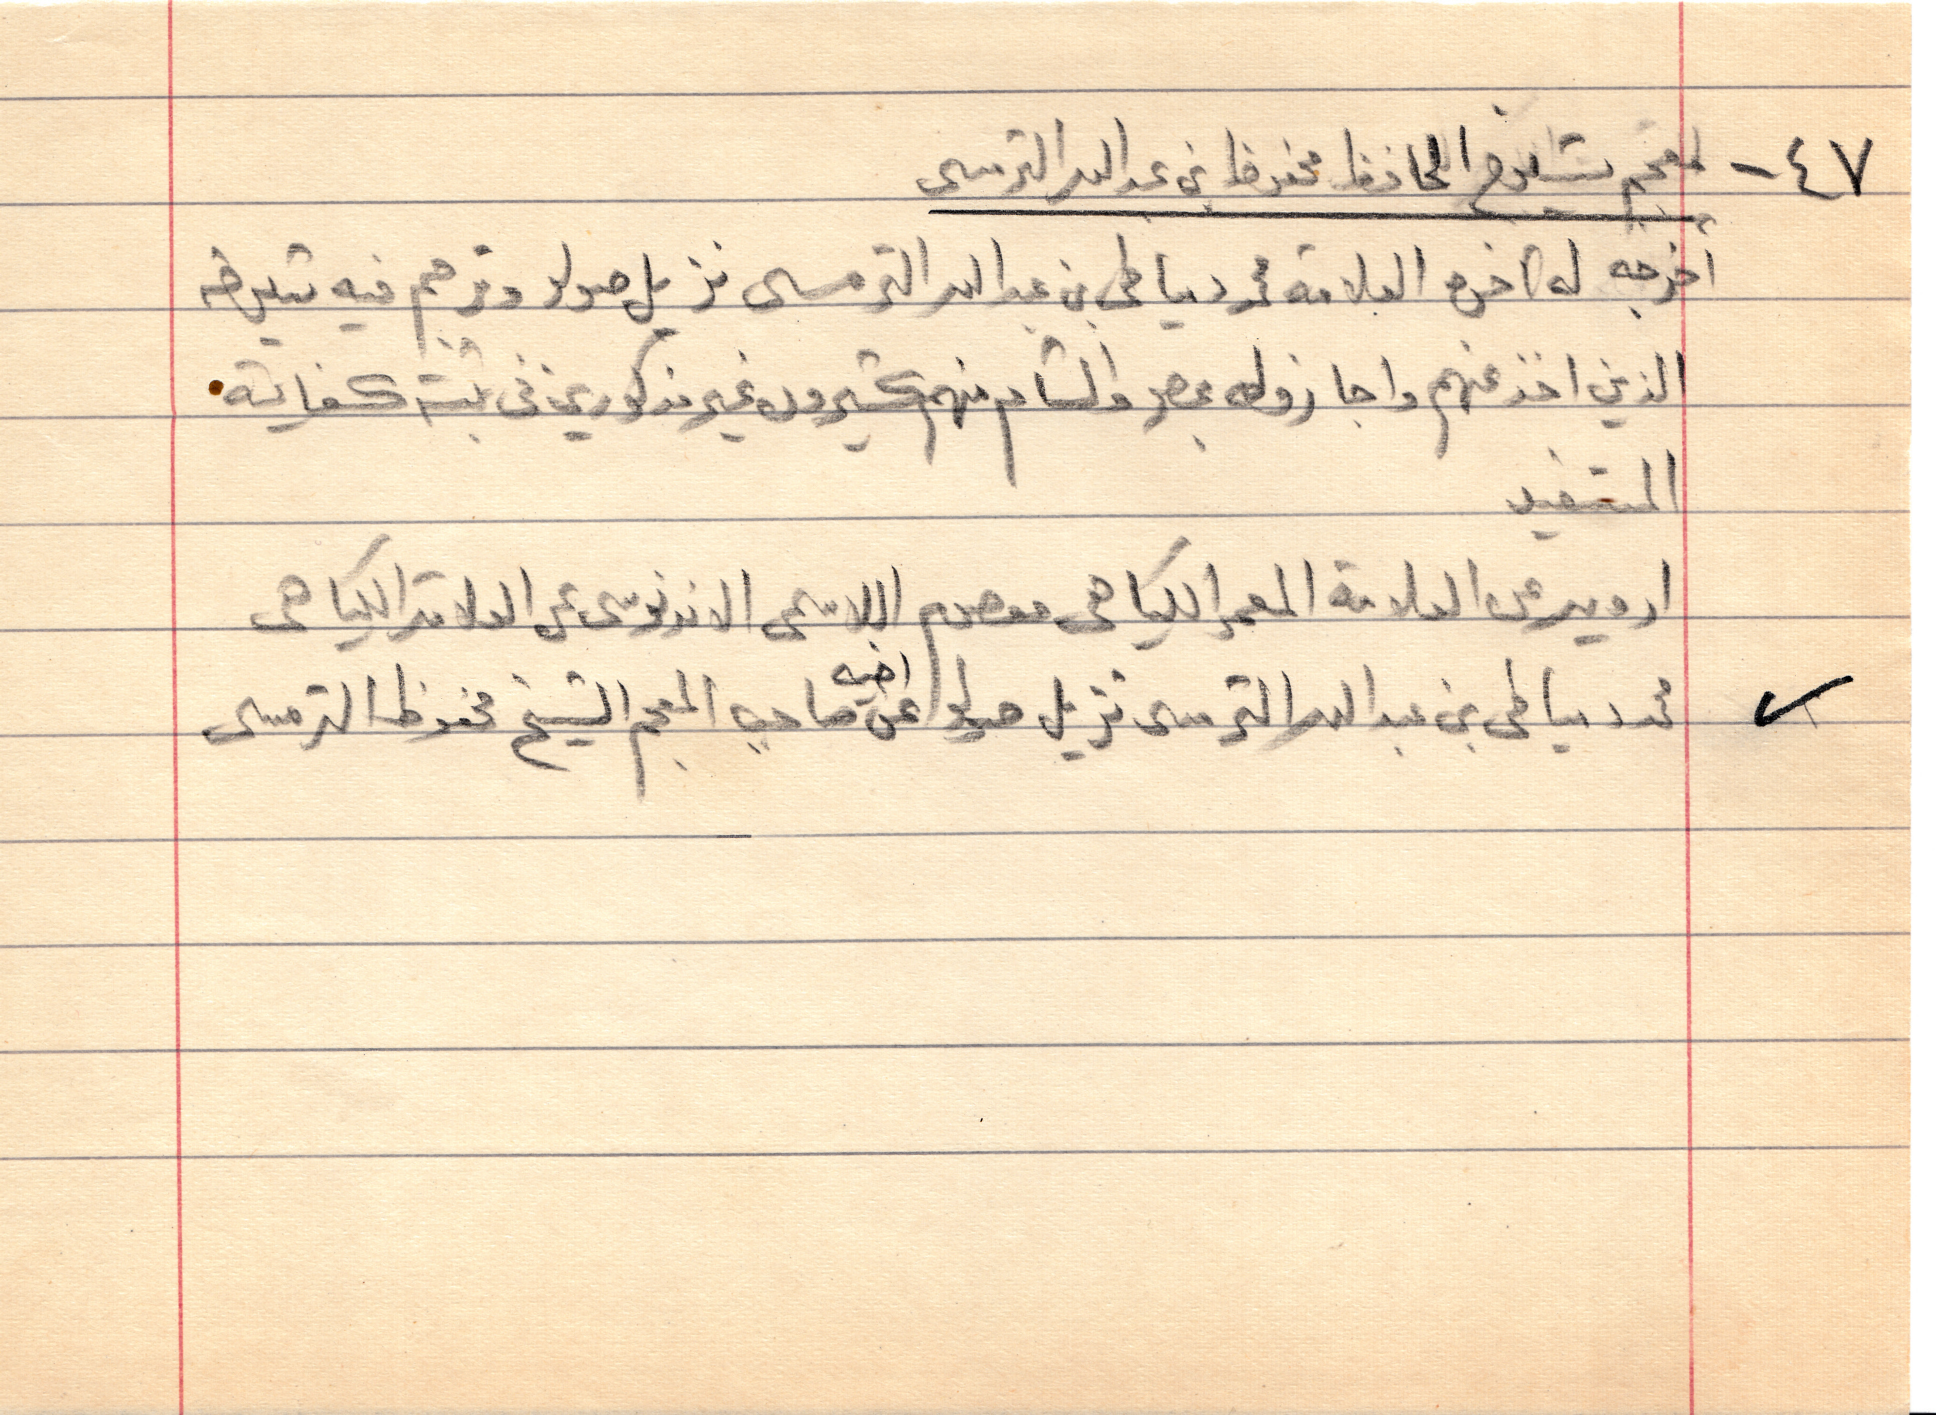 ٤٧- معجم شيوخ الحافظ محفوظ بن عبد الله الترمسي
أخرجه له أخوه العلامة محمد دمياطي بن عبد الله الترمسي نزيل صولو وترجم فيه شيوخه
الذين اخذ عنهم واجازوله بمصر والشام منهم كثيرون غير مذكورين في ثبته كفاية
المستفيد
ارويه عن العلامة المعمر الكياهي معصوم اللاسمي الاندنوسي عن العلامة الكياهي
محمد دمياطي بن عبد الله الترمسي نزيل صولو عن اخيه صاحب المعجم الشيخ محفوظ الترمسي